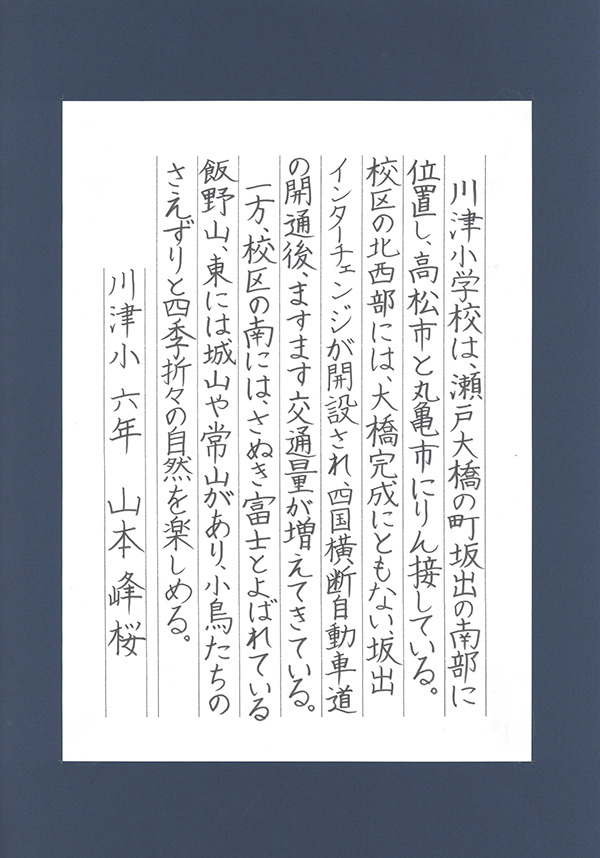 川津小学校は、瀬戸大橋の町坂出の南部に
位置し、高松市と丸亀市にりん接している。
校区の北西部には、大橋完成にともない、坂出
インターチェンジが開設され、四国横断自動車道
の開通後、ますます交通量が増えてきている。
一方、校区の南には、さぬき富士とよばれている
飯野山、東には城山や常山があり、小鳥たちの
さえずりと四季折々の自然を楽しめる。
川津小 六年 山本峰桜